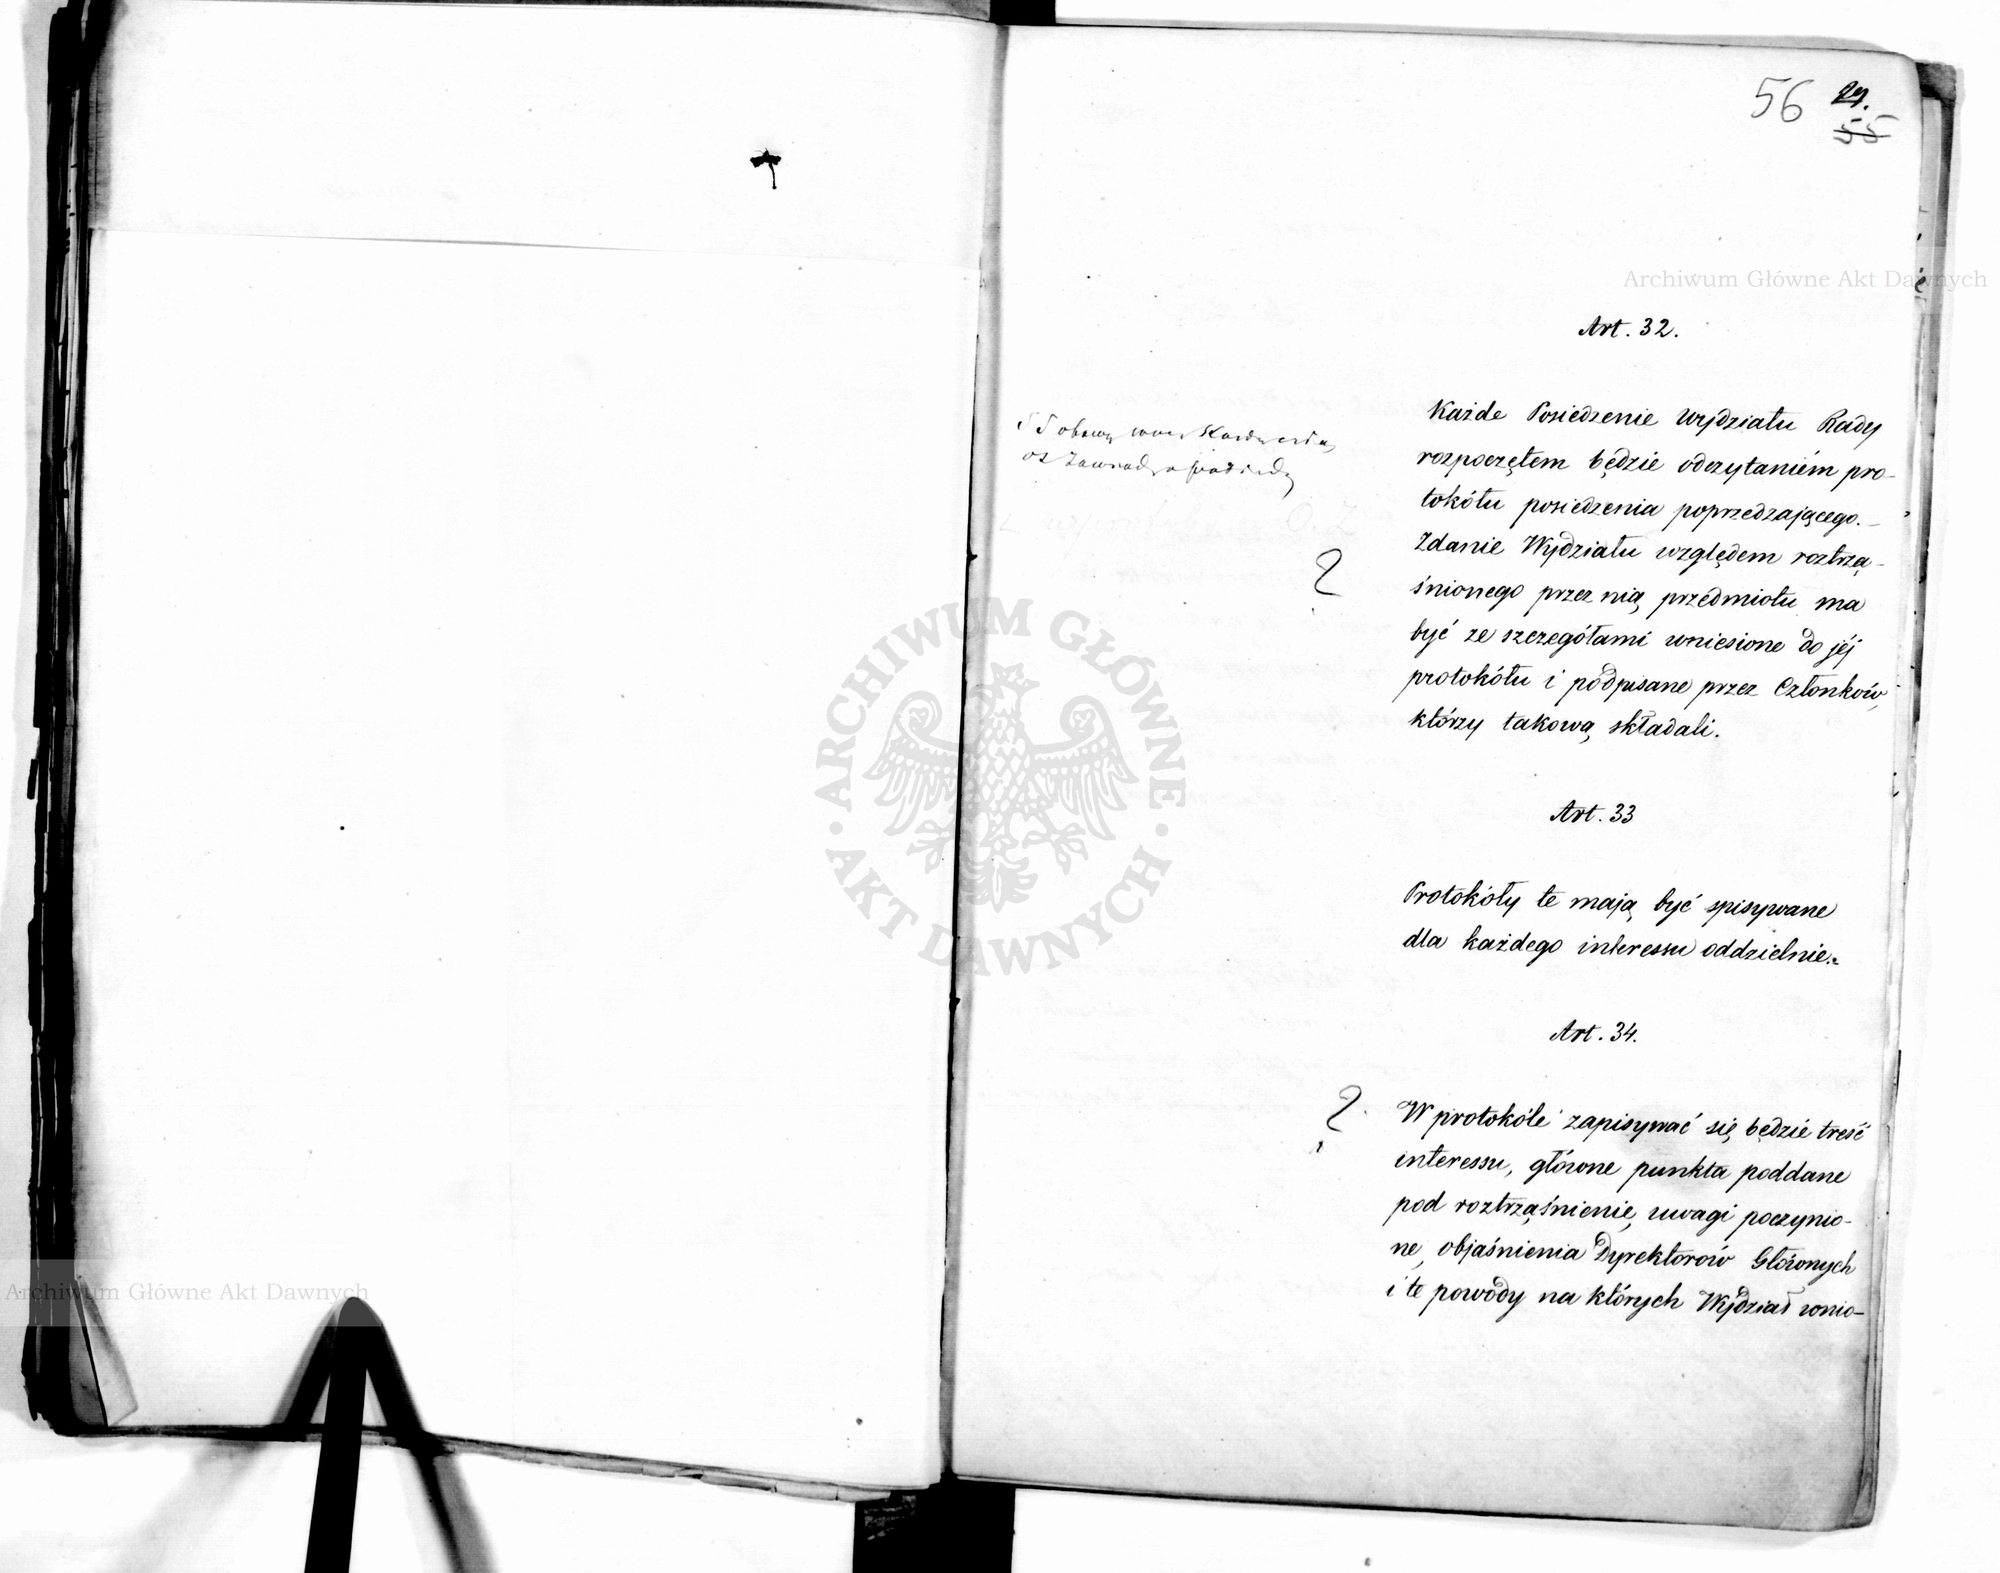 56 29.
55
Archiwum Główne Akt Dawnych
Art. 32.
Każde Posiedzenie Wydziału Rady
rozpoczętem będzie odczytaniem pro-
tokółu posiedzenia poprzedzającego.
Zdanie Wydziału względem roztrzą-
śnionego przez nią przedmiotu ma
być ze szczegółami wniesione do jéj
protokółu i podpisane przez Członków,
którzy takową składali.
?
Art. 33
Protokóły te mają być spisywane
dla każdego interessu oddzielnie.
Art. 34.
?
W protokóle zapisywać się będzie treść
interessu, główne punkta poddane
pod roztrząśnienie, uwagi poczynio-
ne, objaśnienia Dyrektorów Głównych
i te powody na których Wydział wnio-
ARCHIWUM GŁÓWNE
AKT DAWNYCH
Archiwum Główne Akt Dawnych